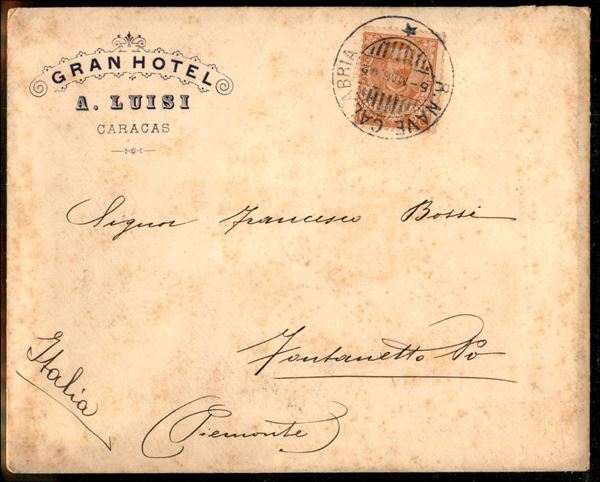 GRAN HOTEL
A. LUISI
CARACAS
R. NAVE CALABRIA
Signor Francesco Bossi
Fontanetto Po
(Piemonte)
Italia